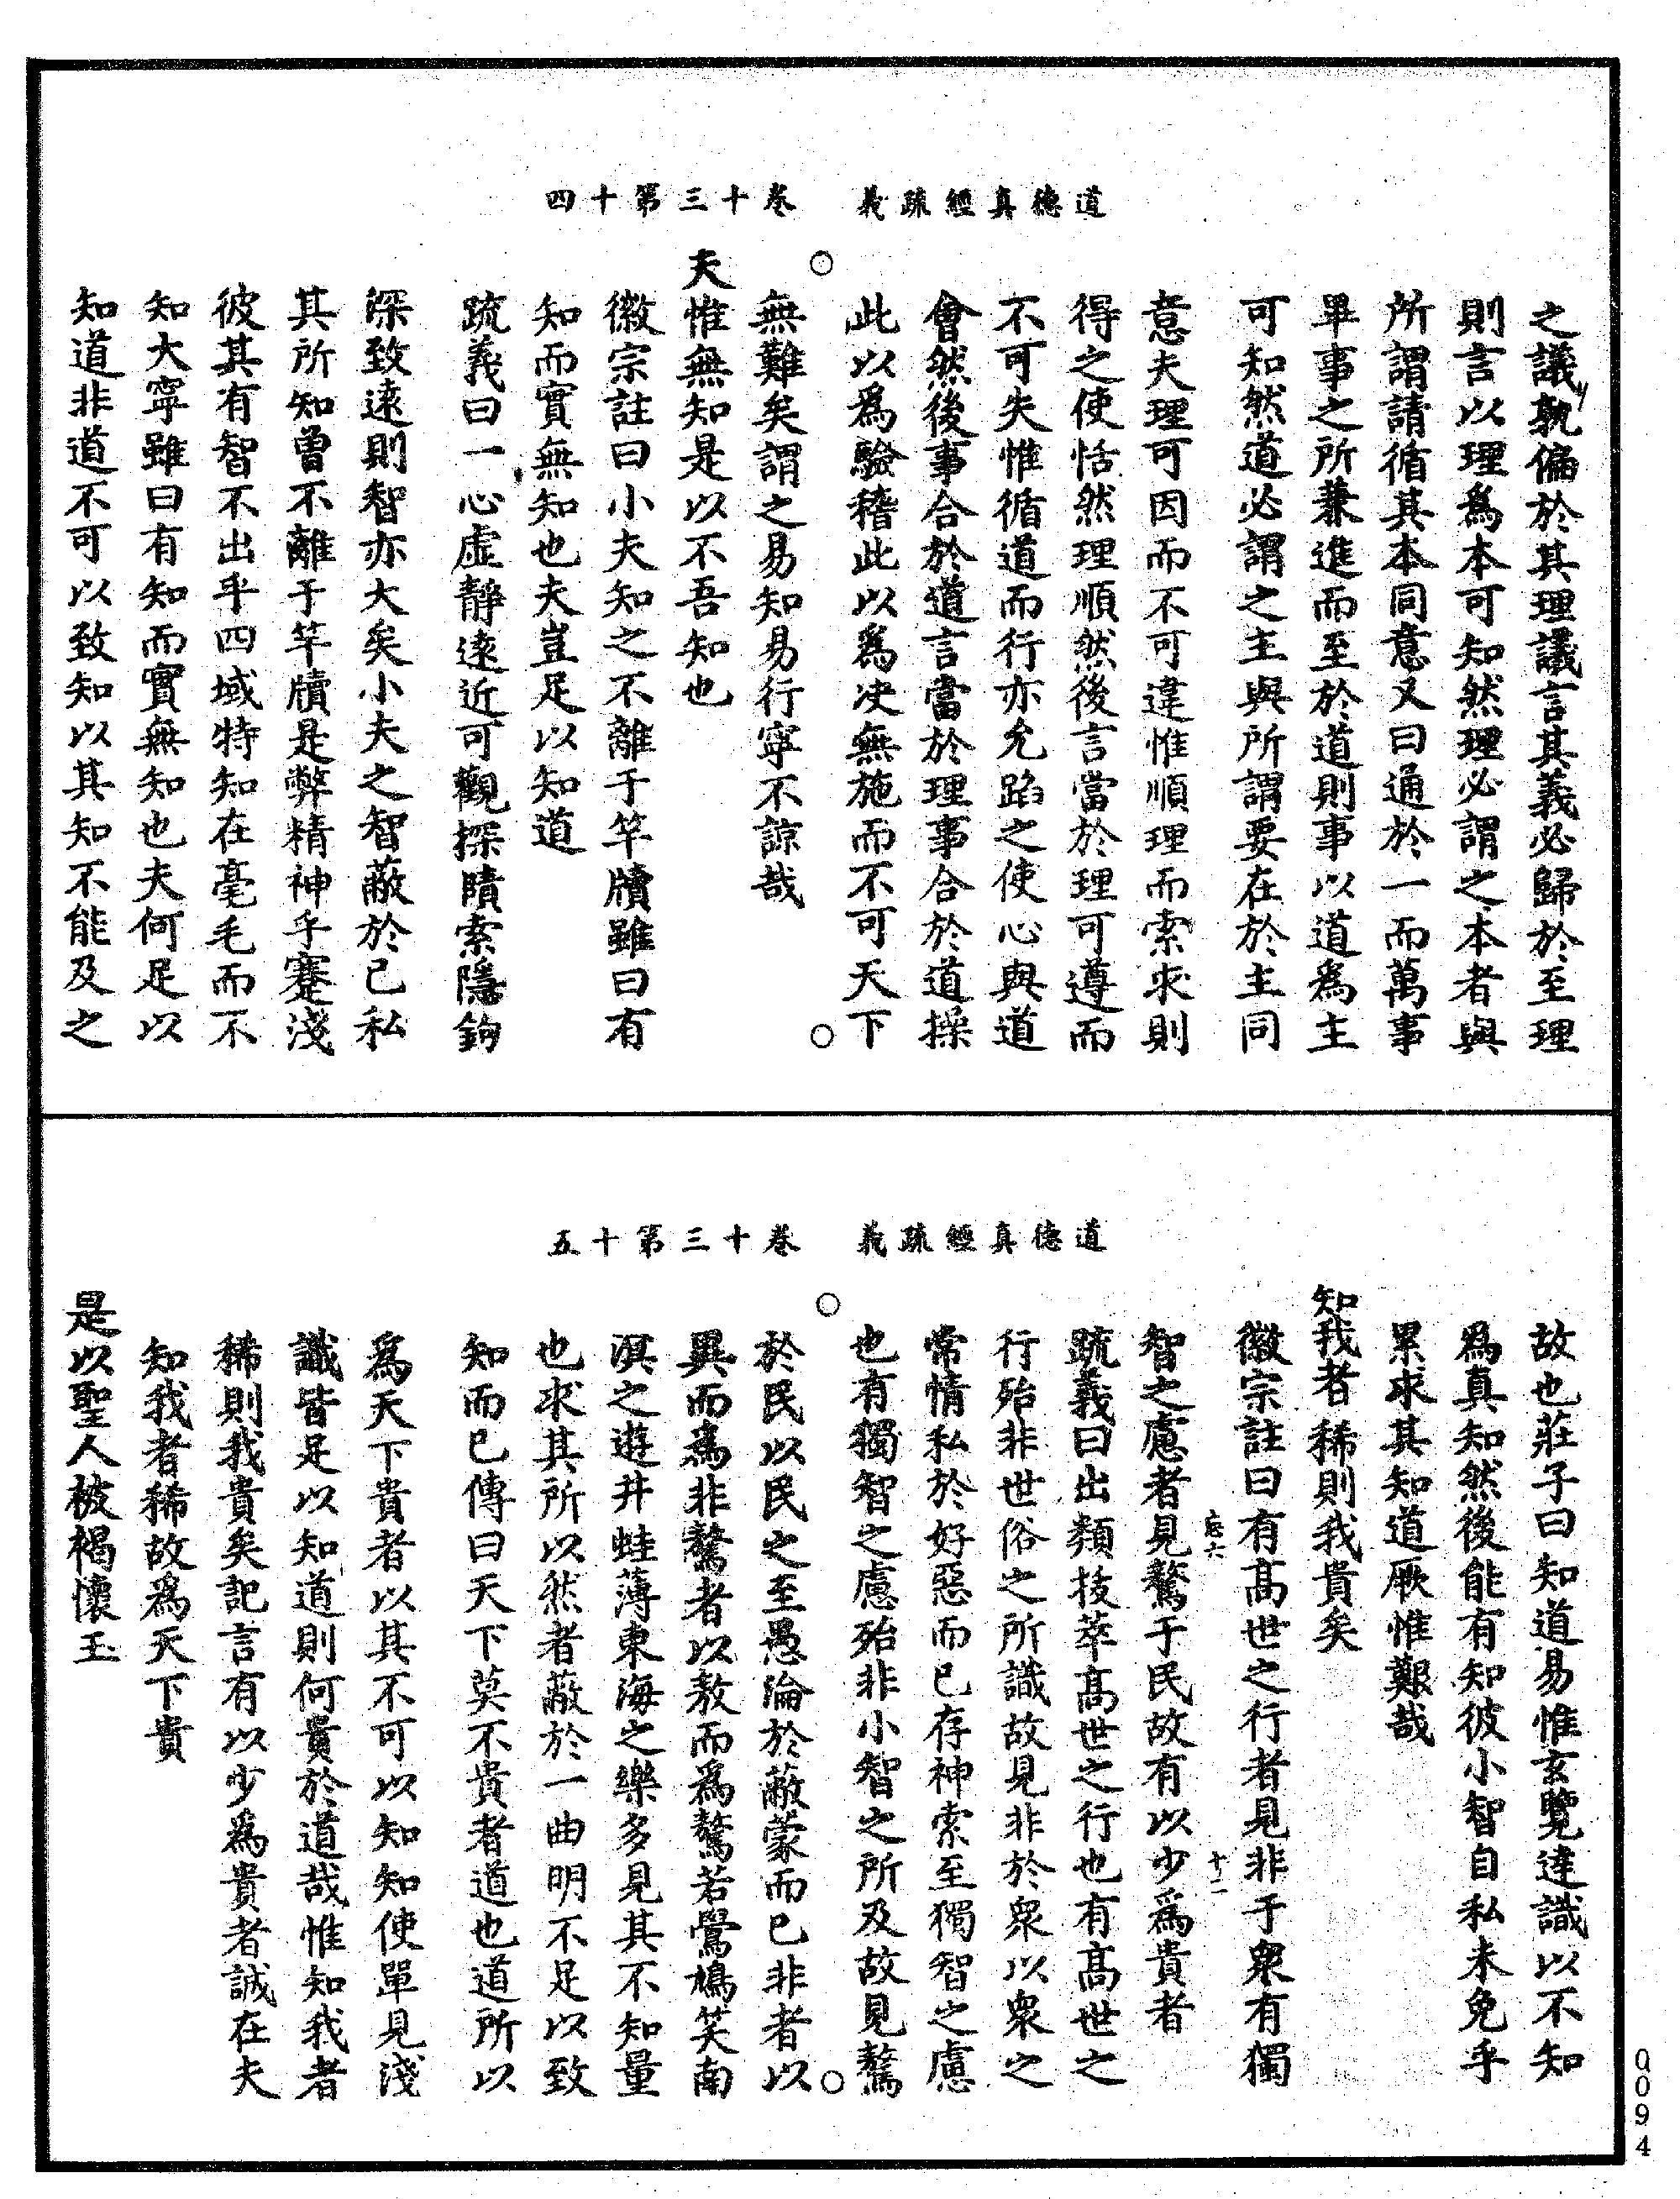 道德真經疏義　卷十三第十四
之議孰偏於其理議言其義必歸於至理
則言以理爲本可知然理必謂之本者與
所謂請循其本同意又曰通於一而萬事
畢事之所兼進而至於道則事以道爲主
可知然道必謂之主與所謂要在於主同
意夫理可因而不可違惟順理而索求則
得之使恬然理順然後言當於理可遵而
不可失惟循道而行亦允蹈之使心與道
會然後事合於道言當於理事合於道操
此以爲驗稽此以爲决無施而不可天下
無難矣謂之易知易行寧不諒哉
夫惟無知是以不吾知也
徽宗註曰小夫知之不離于竿牘雖曰有
知而實無知也夫豈足以知道
疏義曰一心虛靜遠近可觀探賾索隱鉤
深致遠則智亦大矣小夫之智蔽於己私
其所知曾不離于竿牘是弊精神乎蹇淺
彼其有智不出乎四域特知在毫毛而不
知大寧雖曰有知而實無知也夫何足以
知道非道不可以致知以其知不能及之
道德真經疏義　卷十三第十五
故也莊子曰知道易惟玄覽違識以不知
爲真知然後能有知彼小智自私未免乎
累求其知道厥惟艱哉
知我者稀則我貴矣
徽宗註曰有高世之行者見非于衆有獨
忘六　十二
智之慮者見驁于民故有以少爲貴者
疏義曰出類拔萃高世之行也有高世之
行殆非世俗之所識故見非於衆以衆之
常情私於好惡而已存神索至獨智之慮
也有獨智之慮殆非小智之所及故見驁
於民以民之至愚淪於蔽蒙而已非者以
異而爲非驁者以敖而爲驁若鷽鳩笑南
溟之遊井蛙薄東海之樂多見其不知量
也求其所以然者蔽於一曲明不足以致
知而已傳曰天下莫不貴者道也道所以
爲天下貴者以其不可以知知使單見淺
識皆足以知道則何貴於道哉惟知我者
稀則我貴矣記言有以少爲貴者誠在夫
知我者稀故爲天下貴
是以聖人被褐懷玉
0094